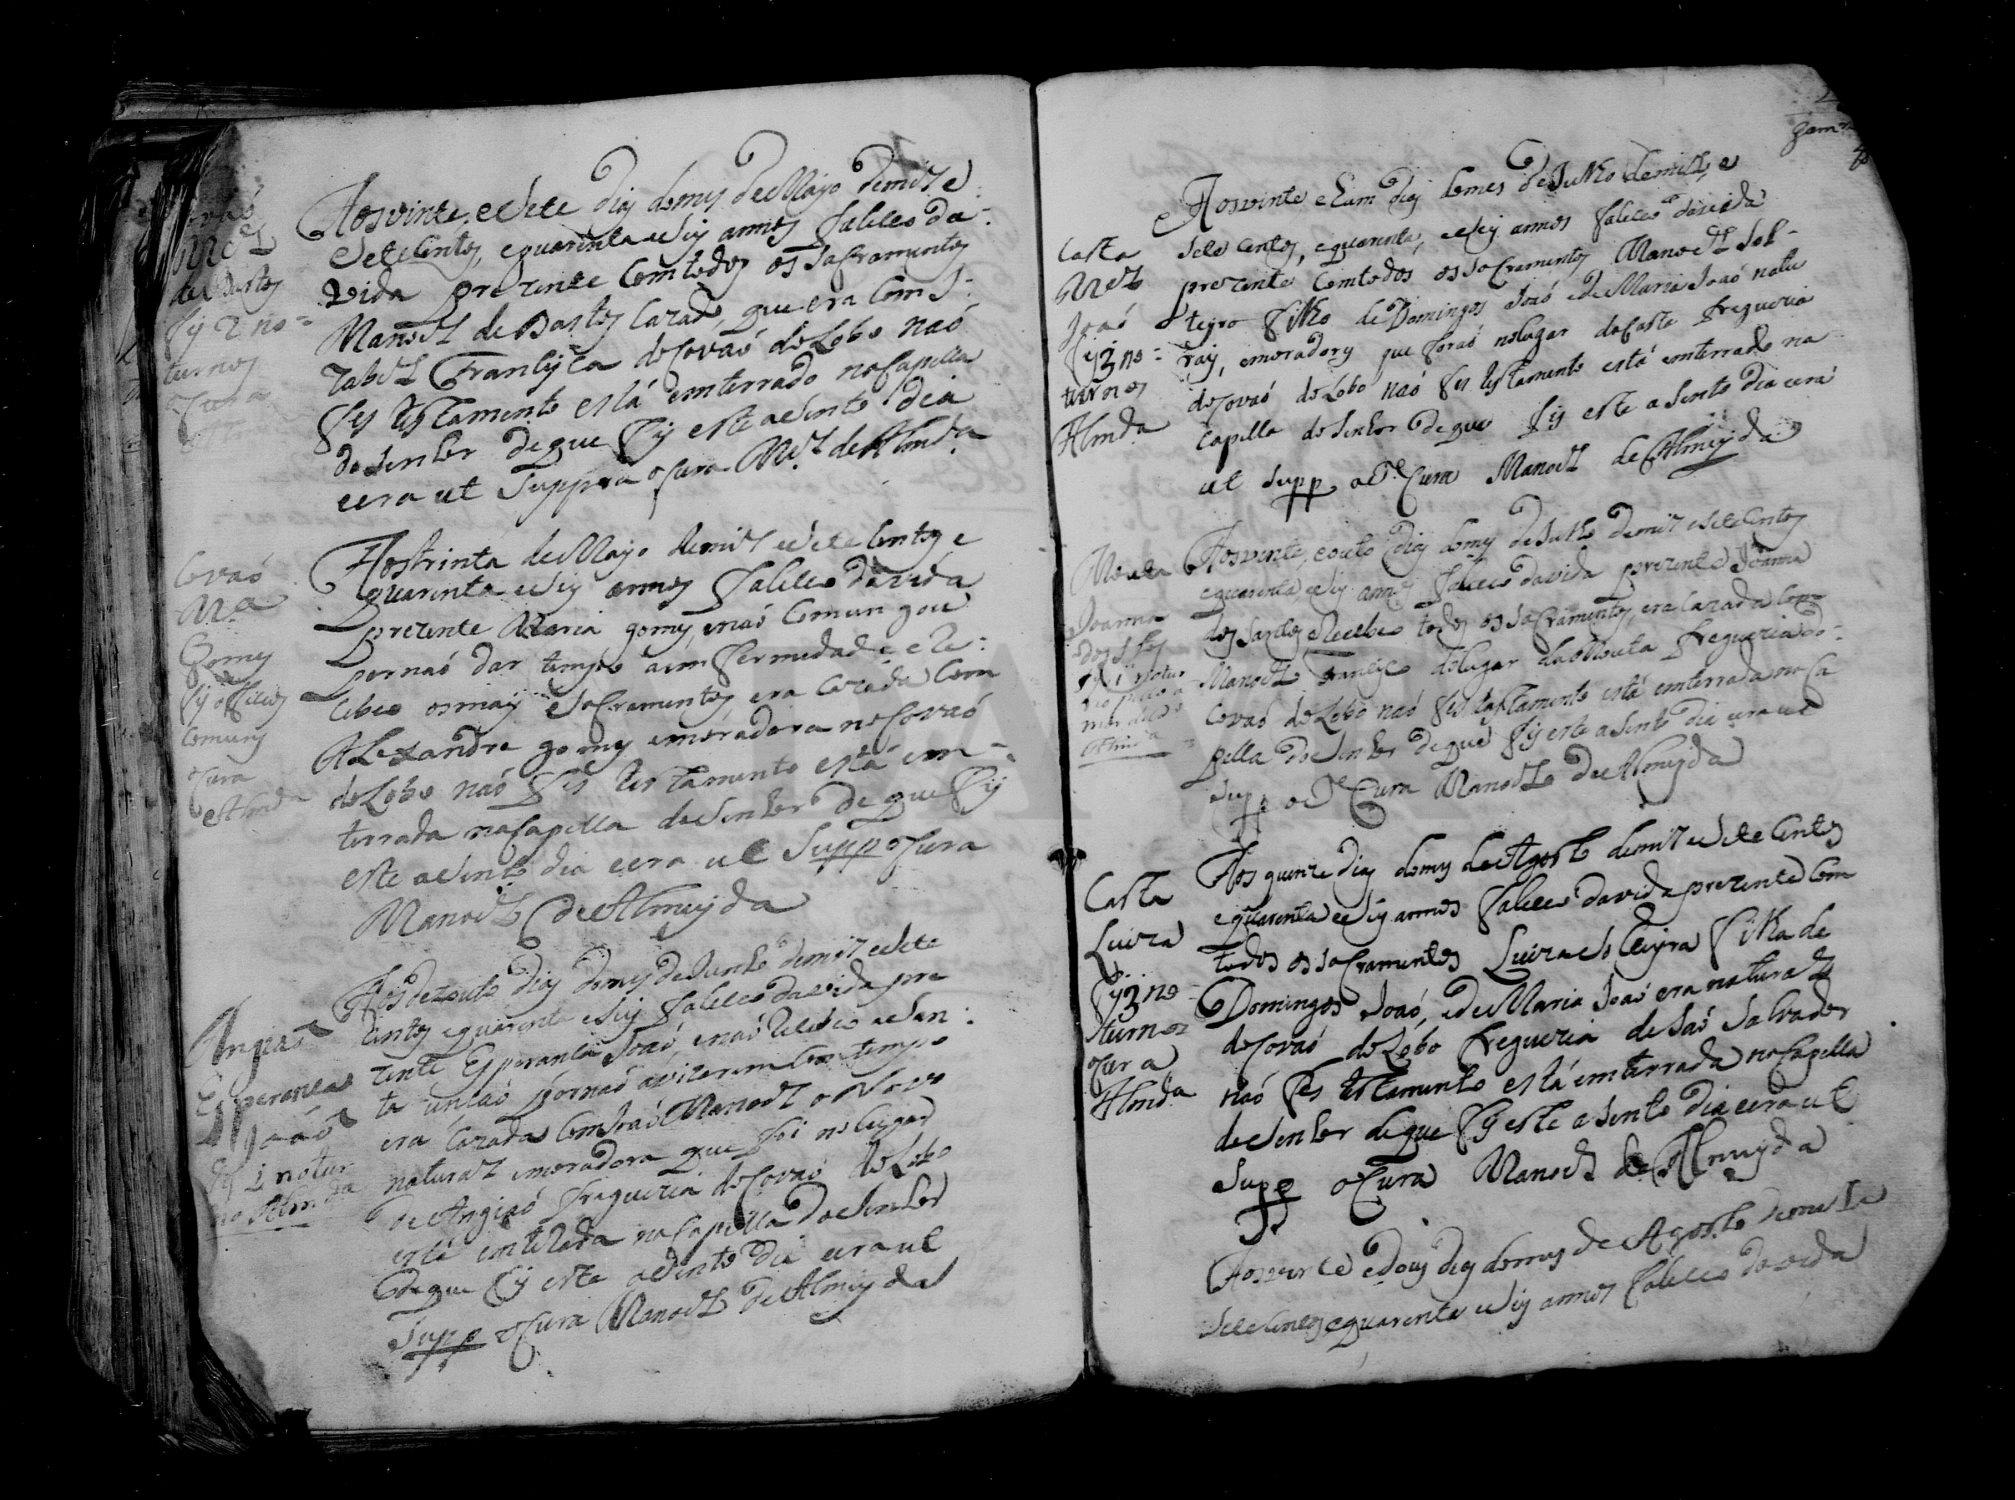 Covaõ
M.el
de Bastos
fis 2 no=
turnos
o Cura
Aos vinte, e sete dias do mes de Mayo de mil e
e sete centos, e quarenta e seis annos faleceo da
vida prezente com todos os sacramentos
Manoel de Bastos cazado, que era com I:
zabel Francisca do Covaõ do Lobo naõ
fes testamento está emterrado na Capella
do Senhor de que fis este asento dia
e era ut Suppra o Cura M.el de Almd.a
Covaõ
M.a
Gomes
fis officios
Comuns
o Cura
Almda
Aos trinta de Mayo de mil e sete centos e
quarenta e seis annos faleceo da vida
prezente Maria gomes, e naõ comungou
por naõ dar tempo a imfermidade e re:
cebeo os mais sacramentos era cazada com
Alexandre gomes e moradora no Covaõ
do Lobo naõ fes testamento está em=
terrada na Capella do Senhor de que fis
este asento dia e era ut Supp o Cura
Manoel de Almeyda
Angiaõ
Esperança
Joaõ
fis 1 notur
no Almda
Aos dezouto dias do mes de Junho de mil e sete
centos e quarenta e seis faleceo da vida pre
zente Esperança Joaõ, e naõ recebeo a San:
ta unçaõ por naõ avizarem com tempo
era cazada com Joaõ Manoel o Novo
natural e moradora que foi no lugar
de Angiaõ freguezia do Covaõ do Lobo
está emterrada na Capella do Senhor
de que fis este asento dia e era ut
Supp o Cura Manoel de Almeyda
Casta
M.el
Joaõ
fis 3 no=
turnos
Almda
Aos vinte e hum dias do mes de Julho de mil, e
sete centos, e quarenta, e seis annos faleceo da vida
prezente com todos os sacramentos Manoel Sol=
teyro filho de Domingos Joaõ e de Maria Joaõ natu
rais, e moradores que foraõ no lugar da Casta freguezia
do Covaõ do Lobo naõ fes testamento está emterrado na
Capella do Senhor de que fis este asento dia e era
ut Supp o P.e Cura Manoel de Almeyda
Mouta
Joanna
dos Stos
fis 1 notur
no
Almda
Aos vinte, e outo dias do mes de Julho de mil e sete centos
e quarenta, e seis annos faleceo da vida prezente Joanna
dos Santos e recebeo todos os sacramentos, era cazada com
Manoel Francisco do lugar da Mouta freguezia do
Covaõ do Lobo naõ fes testamento está emterrada na Ca
pella do Senhor de que fis este asento dia e era ut
Supp o P.e Cura Manoel de Almeyda
Casta
Luiza
fis 3 no
turnos
o Cura
Almda
Aos quinze dias do mes de Agosto de mil e sete centos
e quarenta e seis annos faleceo da vida prezente com
todos os sacramentos Luiza solteyra filha de
Domingos Joaõ, e de Maria Joaõ era natural
do Covaõ do Lobo freguezia de Saõ Salvador
naõ fes testamento está emterrada na Capella
do Senhor de que fis este asento dia e era ut
Supp o Cura Manoel de Almeyda
Aos vinte e dous dias do mes de Agosto de mil e
sete centos e quarenta e seis annos faleceo da vida